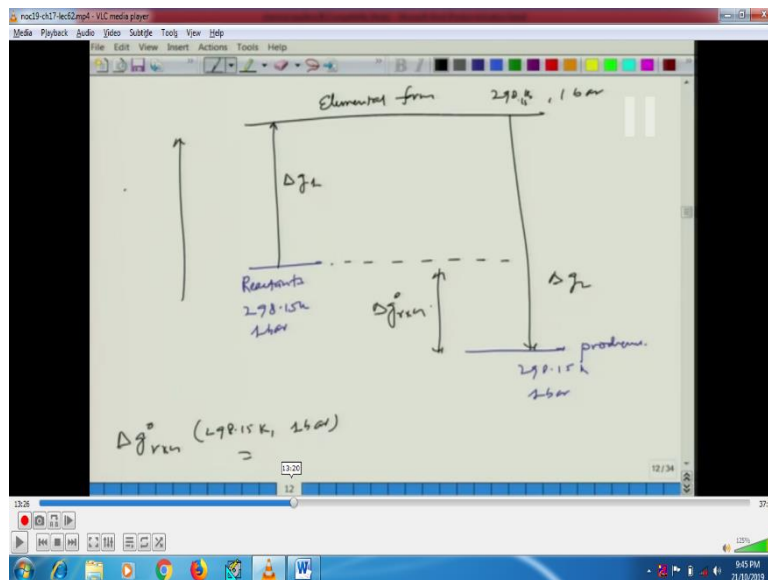 noc19-ch17-lec62.mp4 - VLC media player
Media Playback Audio Video Subtitle Tools View Help
File Edit View Insert Actions Tools Help
Elemental from 298 K, 1 bar
Δg1
Reactants
298.15K
1bar
Δg°rxn
Δg2
products
298.15 K
1bar
Δg°rxn (298.15K, 1bar)
=
13:20
12
12/34
13:26
37:
125%
9:45 PM
21/10/2019